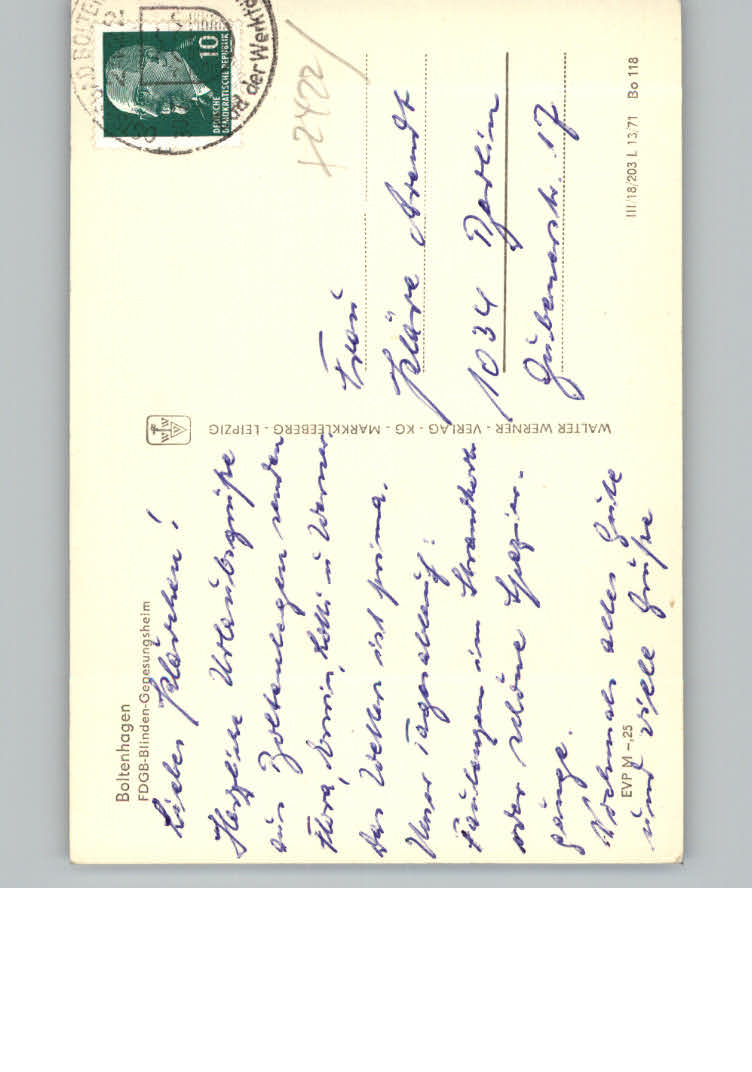 Boltenhagen
FDGB-Blinden-Genesungsheim
Liebes Klärchen!
Herzliche Urlaubsgrüße
aus Boltenhagen senden
Flora, Erwin, Lotti u Werner.
Das Wetter ist prima.
Unser Tagesablauf:
Faulenzen im Strandkorb
oder schöne Spazier-
gänge.
Nochmals alles Gute
und viele Grüße
EVP M –,25
WALTER WERNER - VERLAG - KG - MARKKLEEBERG - LEIPZIG
DEUTSCHE
DEMOKRATISCHE REPUBLIK
10
BOLTEN
der Werktä
+2422/
Frau
Kläre Arendt
1034 Berlin
Gubenerstr. 17
III/18/203 L 13/71 Bo 118